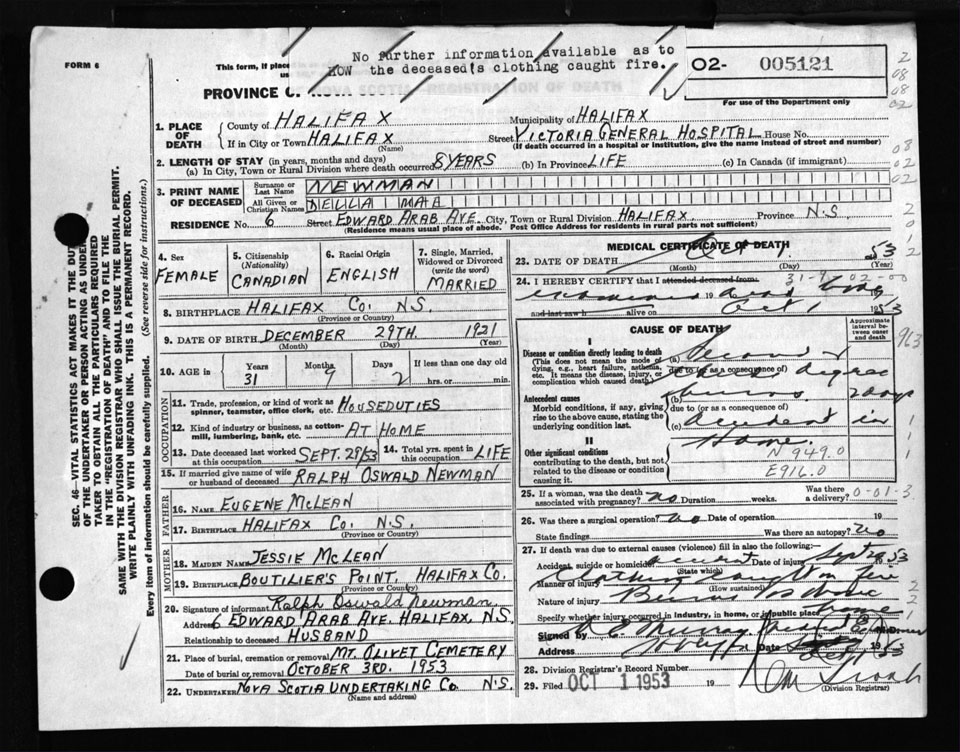 FORM 6
This form, if place
No further information available as to
HOW the deceased's clothing caught fire.
PROVINCE O. NOVA SCOTIA—REGISTRATION OF DEATH
O2- 005121
For use of the Department only
1. PLACE OF DEATH
County of HALIFAX Municipality of HALIFAX
If in City or Town HALIFAX Street VICTORIA GENERAL HOSPITAL House No.
(Name) (If death occurred in a hospital or institution, give the name instead of street and number)
2. LENGTH OF STAY (in years, months and days)
(a) In City, Town or Rural Division where death occurred 8 YEARS (b) In Province LIFE (c) In Canada (if immigrant)
3. PRINT NAME OF DECEASED
Surname or Last Name NEWMAN
All Given or Christian Names DELLA MAE
RESIDENCE No. 6 Street EDWARD ARAB AVE. City, Town or Rural Division HALIFAX. Province N.S.
(Residence means usual place of abode. Post Office Address for residents in rural parts not sufficient)
4. Sex FEMALE
5. Citizenship (Nationality) CANADIAN
6. Racial Origin ENGLISH
7. Single, Married, Widowed or Divorced (write the word) MARRIED
8. BIRTHPLACE HALIFAX CO. N.S.
(Province or Country)
9. DATE OF BIRTH DECEMBER 29TH. 1921
(Month) (Day) (Year)
10. AGE IN Years 31 Months 9 Days 2 If less than one day old hrs. or min.
OCCUPATION
11. Trade, profession, or kind of work as spinner, teamster, office clerk, etc. HOUSEDUTIES
12. Kind of industry or business, as cotton-mill, lumbering, bank, etc. AT HOME
13. Date deceased last worked at this occupation SEPT. 29/53 14. Total yrs. spent in this occupation LIFE
15. If married give name of wife or husband of deceased RALPH OSWALD NEWMAN
FATHER
16. Name EUGENE McLEAN
17. Birthplace HALIFAX CO. N.S.
MOTHER
18. MAIDEN Name JESSIE McLEAN
19. Birthplace BOUTILIER'S POINT, HALIFAX CO.
20. Signature of informant Ralph Oswald Newman
Address 6 EDWARD ARAB AVE. HALIFAX, N.S.
Relationship to deceased HUSBAND
21. Place of burial, cremation or removal MT. OLIVET CEMETERY
Date of burial or removal OCTOBER 3RD. 1953
22. Undertaker NOVA SCOTIA UNDERTAKING CO. N.S.
(Name and address)
MEDICAL CERTIFICATE OF DEATH
23. DATE OF DEATH Oct 1. 53
(Month) (Day) (Year)
24. I HEREBY CERTIFY that I attended deceased from:
examined 19 dead body 19
and last saw h alive on Oct 1 1953
CAUSE OF DEATH
Approximate interval between onset and death
I
Disease or condition directly leading to death (a) Second &
(This does not mean the mode of dying, e.g., heart failure, asthenia, etc. It means the disease, injury, or complication which caused death)
due to (or as a consequence of) degree
Antecedent causes (b) burns 2 days
Morbid conditions, if any, giving rise to the above cause, stating the underlying condition last.
due to (or as a consequence of)
(c) accident in
Home.
II
Other significant conditions N 949.0
contributing to the death, but not related to the disease or condition causing it. E916.0
25. If a woman, was the death associated with pregnancy? no Duration weeks. Was there a delivery?
26. Was there a surgical operation? no Date of operation 19
State findings Was there an autopsy? no
27. If death was due to external causes (violence) fill in also the following:—
Accident, suicide or homicide? accident Date of injury Sept 29 1953
(State which)
Manner of injury clothing caught on fire
(How sustained)
Nature of injury Burns
Specify whether injury occurred in industry, in home, or in public place home
Signed by
Address Halifax Date
28. Division Registrar's Record Number
29. Filed OCT 1 1953 19
(Division Registrar)
SEC. 46—VITAL STATISTICS ACT MAKES IT THE DUTY
OF THE UNDERTAKER OR PERSON ACTING AS UNDER-
TAKER TO OBTAIN ALL THE PARTICULARS REQUIRED
IN THE "REGISTRATION OF DEATH" AND TO FILE THE
SAME WITH THE DIVISION REGISTRAR WHO SHALL ISSUE THE BURIAL PERMIT.
WRITE PLAINLY WITH UNFADING INK. THIS IS A PERMANENT RECORD.
Every item of information should be carefully supplied. (See reverse side for instructions.)